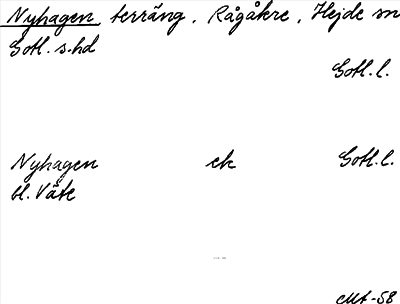 Nyhagen, terräng, Rågåkre, Hejde sn
Gotl. s. hd
Gotl. l.
Nyhagen ek Gotl. l.
bl. Väte
-58